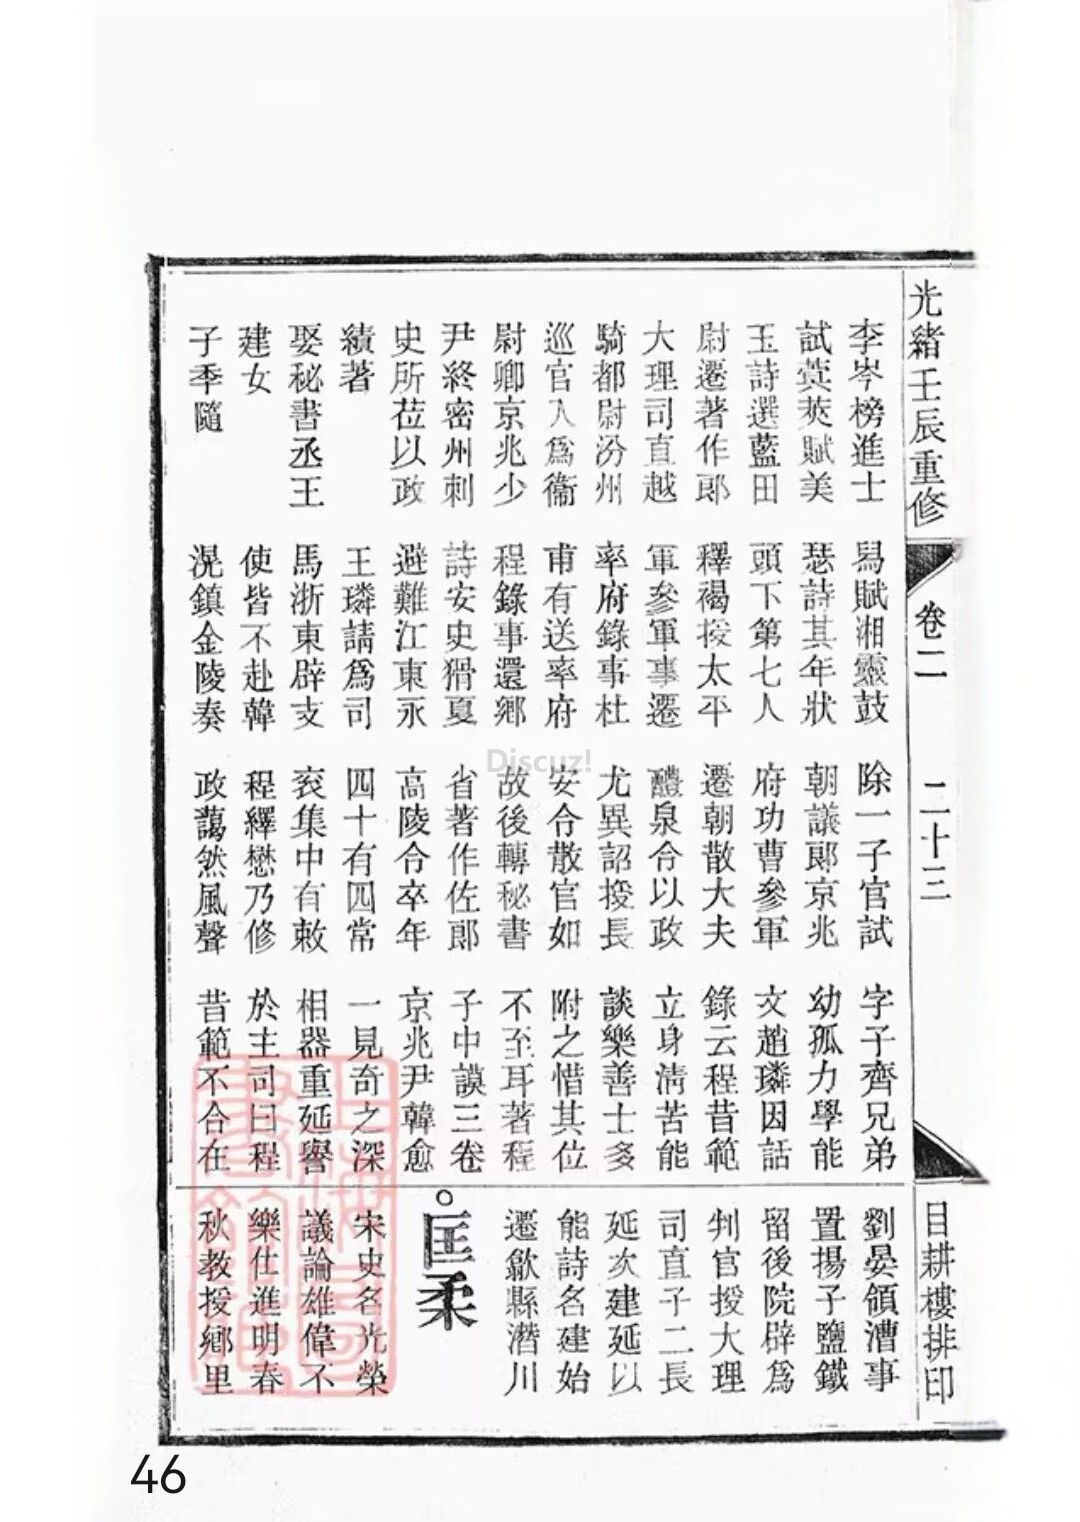 光緒壬辰重修
卷二
二十三
目耕樓排印
李岑榜進士
試蓂莢賦美
玉詩選藍田
尉遷著作郎
大理司直越
騎都尉汾州
巡官入爲衞
尉卿京兆少
尹終密州刺
史所莅以政
績著
娶秘書丞王
建女
子季隨
舄賦湘靈鼓
瑟詩其年狀
頭下第七人
釋褐授太平
軍參軍事遷
率府錄事杜
甫有送率府
程錄事還鄉
詩安史猾夏
避難江東永
王璘請爲司
馬浙東辟支
使皆不赴韓
滉鎮金陵奏
除一子官試
朝議郎京兆
府功曹參軍
遷朝散大夫
醴泉令以政
尤異詔授長
安令散官如
故後轉秘書
省著作佐郎
高陵令卒年
四十有四常
衮集中有敕
程繹懋乃修
政藹然風聲
字子齊兄弟
幼孤力學能
文趙璘因話
錄云程昔範
立身淸苦能
談樂善士多
附之惜其位
不至耳著程
子中謨三卷
京兆尹韓愈
一見奇之深
相器重延譽
於主司曰程
昔範不合在
劉晏領漕事
置揚子鹽鐵
留後院辟爲
判官授大理
司直子二長
延次建延以
能詩名建始
遷歙縣潛川
。匡柔
宋史名光榮
議論雄偉不
樂仕進明春
秋教授鄉里
Discuz!
46